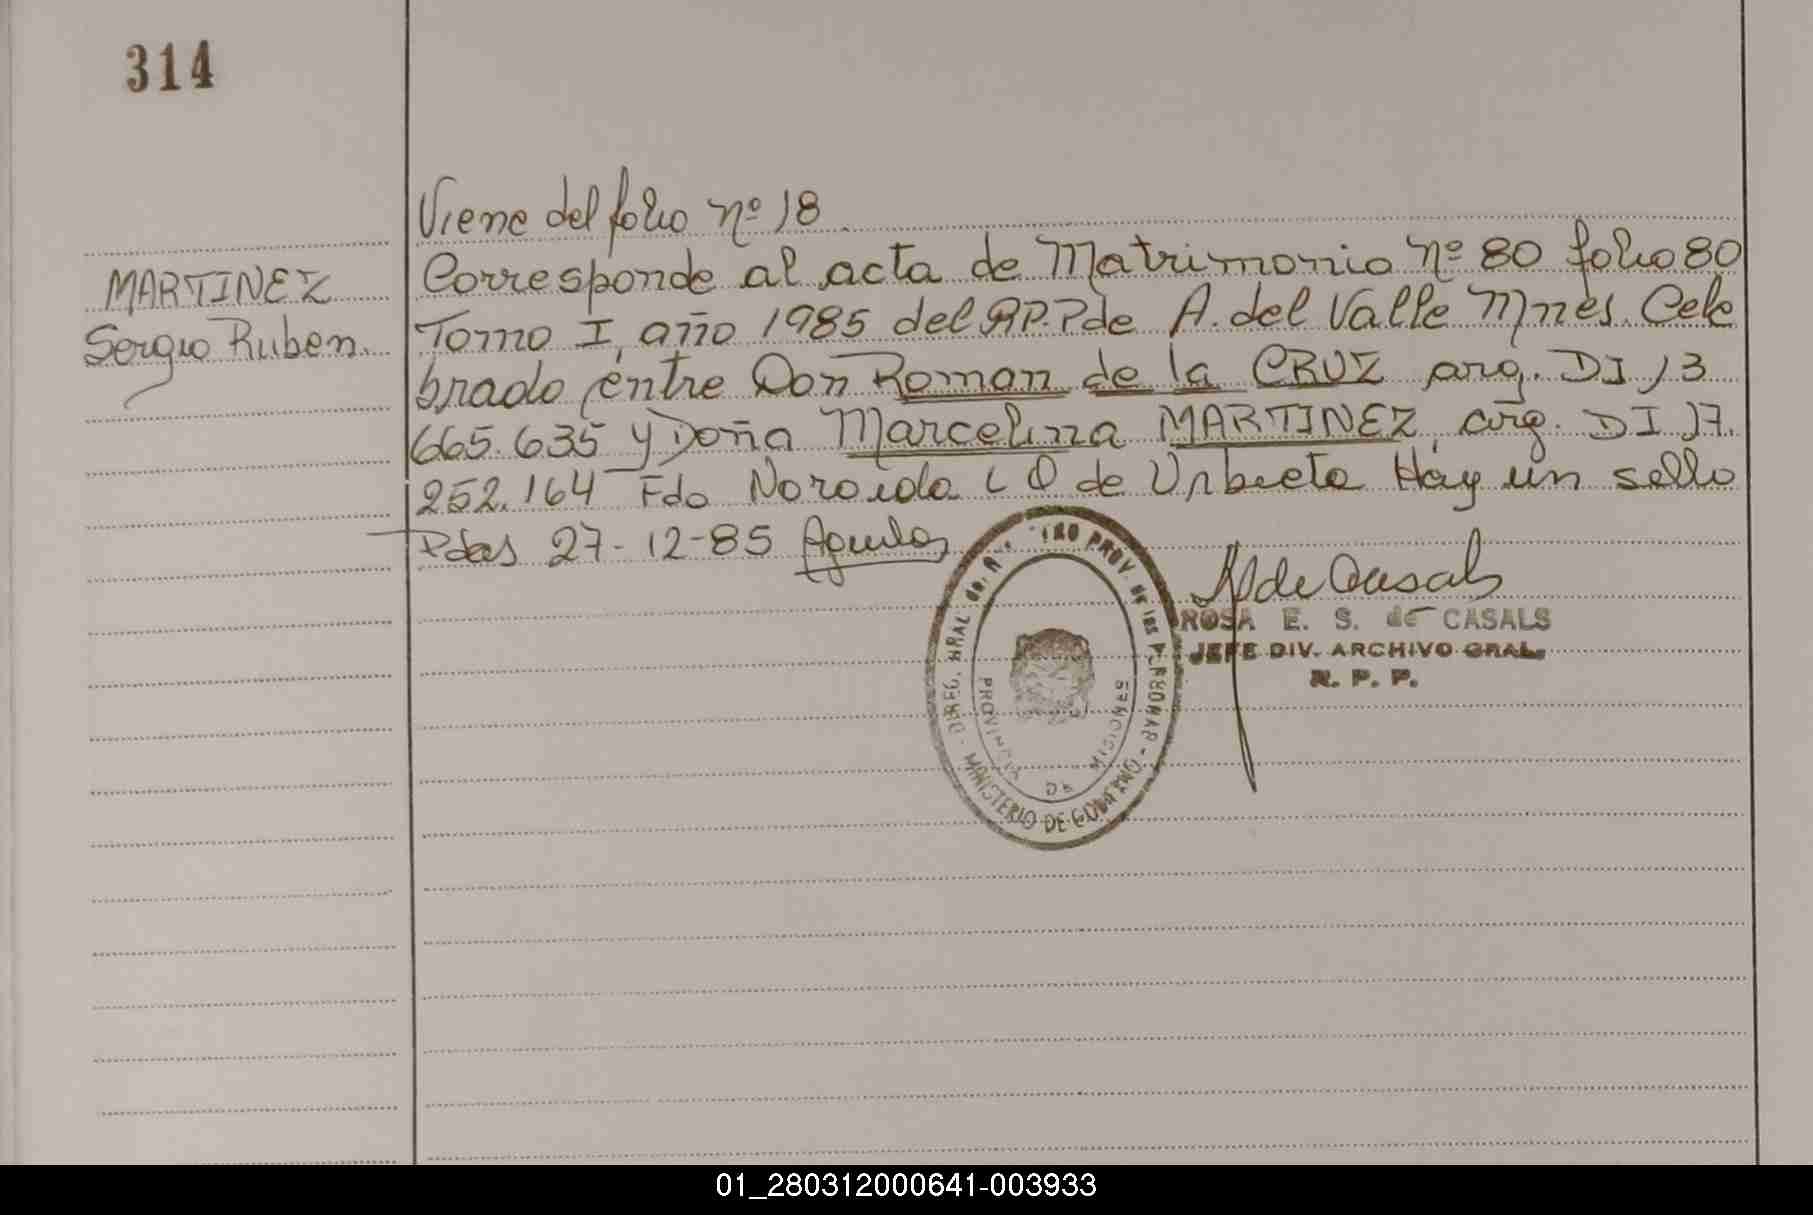 314
Viene del folio nº 18
MARTINEZ
Sergio Ruben.
Corresponde al acta de Matrimonio nº 80 folio 80
Tomo I, año 1985 del RP.P de A. del Valle Mnes. Cele
brado entre Don Roman de la CRUZ arg. DI 13
665.635 y Doña Marcelina MARTINEZ, arg. DI 17.
252.164 Fdo de Urbieta Hay un sello
Pdas 27-12-85
ROSA E. S. de CASALS
JEFE DIV. ARCHIVO GRAL.
R. P. P.
PROV. DE LAS PERSONAS - MINISTERIO DE GOBIERNO
PROVINCIA DE MISIONES
01_280312000641-003933